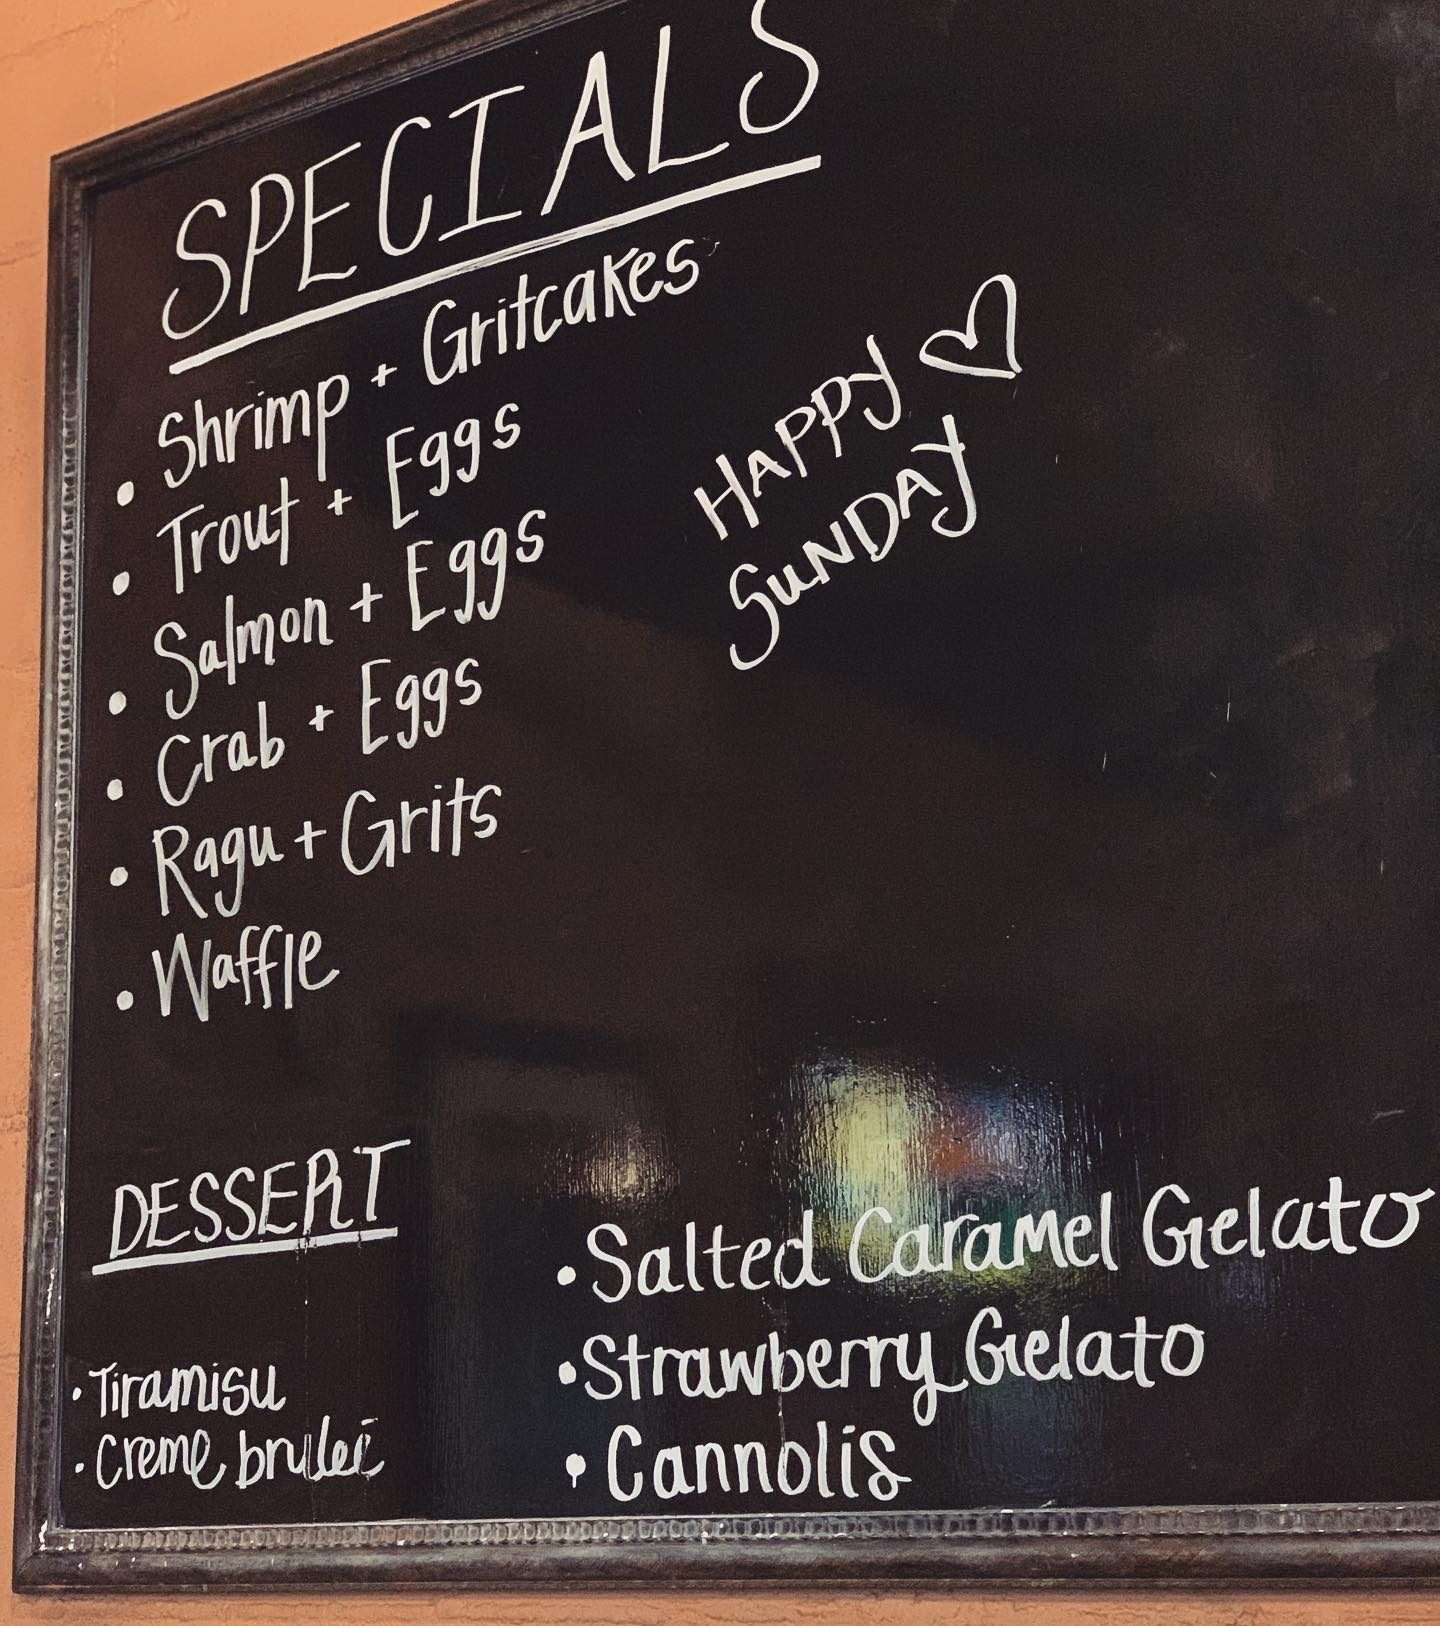 SPECIALS
• Shrimp + Gritcakes
• Trout + Eggs
• Salmon + Eggs
• Crab + Eggs
• Ragu + Grits
• Waffle
HAPPY ♡
SUNDAY
DESSERT
• Tiramisu
• Creme
• Salted Caramel Gelato
• Strawberry Gelato
• Cannolis